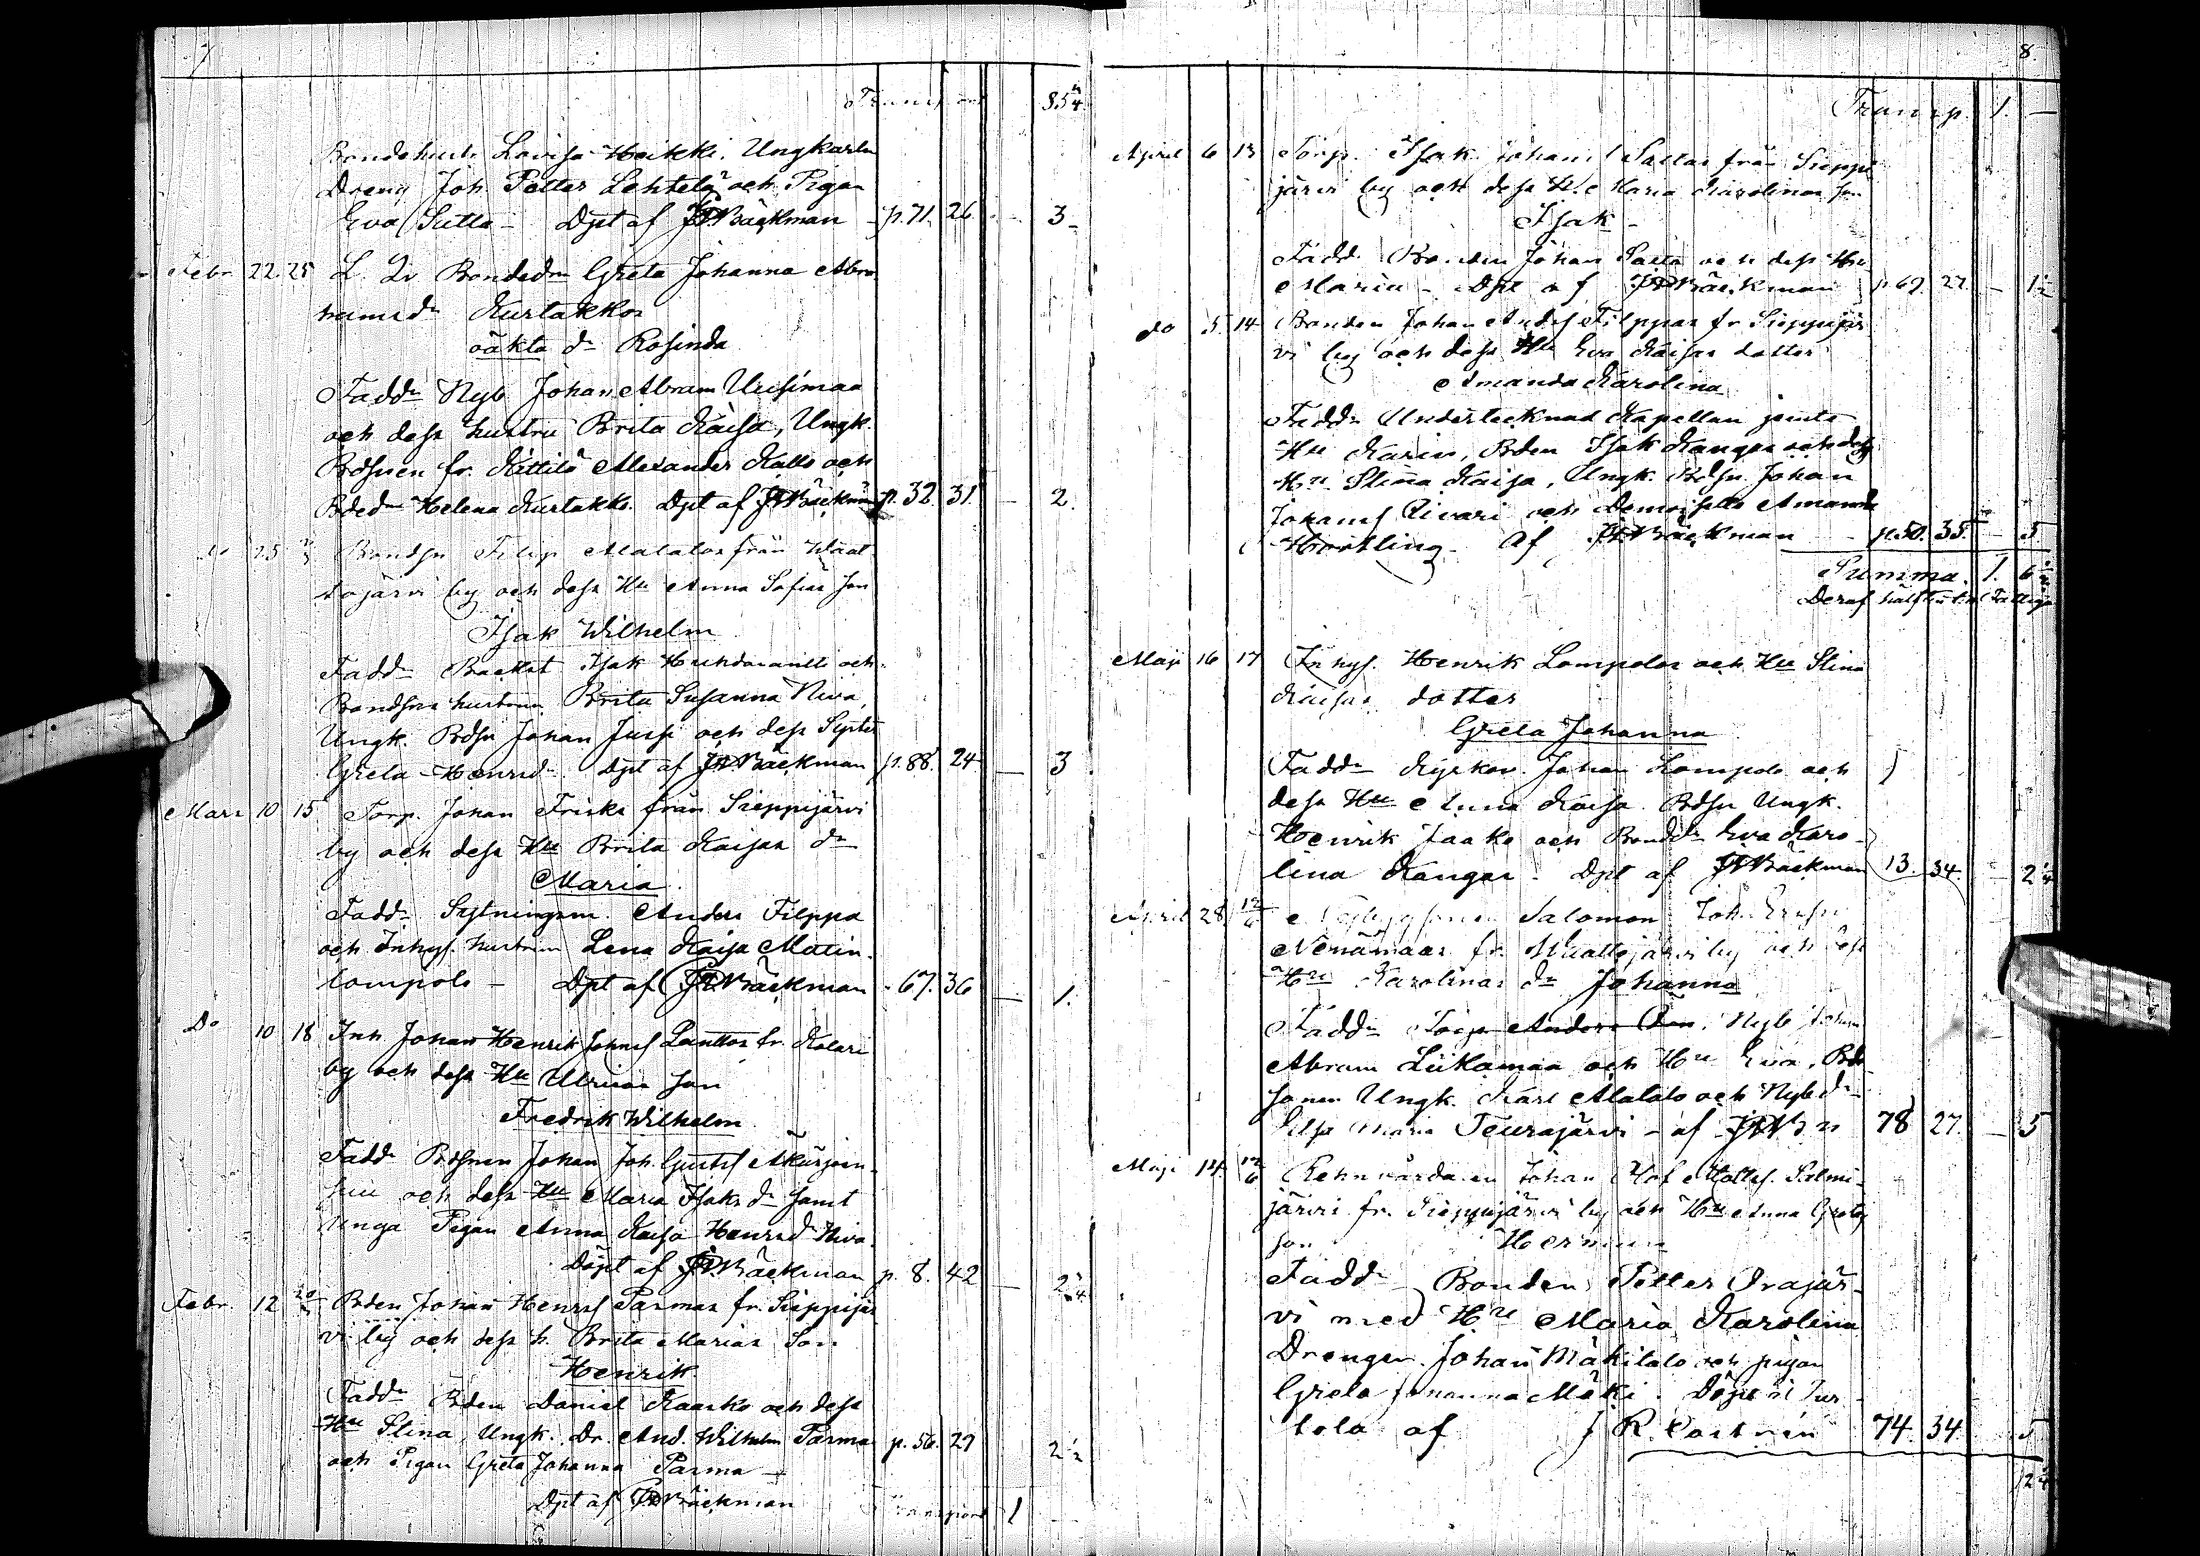 7
Transport 35 1/4
Bondehustr Lovisa Heikki, Ungkarlen
Dreng Joh. Petter Lehtela och Pigan
Eva Sutta - Dpt af JPBäckman - p. 71. 26 - 3 -
Febr 22. 25 L. Qv. Bondedn Greta Johanna Abra
hamsdr Kurtakkos
oäkta dr Rosinda
Fadd Nyb Johan Abram Uusimaa
och dess hustru Brita Kaisa, Ungk.
Bdsonen fr. Kittilä Alexander Kallo och
Bdedn Helena Kurtakko. Dpt af JPBäckman p. 32. 31. - 2.
do 25 Bondsn Filip Alatalos från
tojärvi by och dess Hu Anna Sofias son
Isak Wilhelm
Fadd Backst Isak och
Bondsons hustrun Brita Susanna Niva,
Ungk. Bdsn Johan Jussi och dess Syster
Greta Henrsd - Dpt af JPBäckman p. 88. 24 - 3
Mars 10 15 Torp. Johan Frisks från Sieppijärvi
by och dess Hu Brita Kaisas dr
Maria
Fadd Anders Filppa
och Inhys. hustrun Lena Kaisa Matin
lompolo - Dpt af JPBäckman - 67. 36 - 1.
Do 10 18 Inh Johan Henrik Johnsf Lanttos fr. Kolari
by och dess Hu Ulricas son
Fredrik Wilhelm
Fadd Bdsonen Johan Joh. Gustsf Äkäsjoen
suu och dess Hu Maria Isaksdr samt
Unga Pigan Anna Kaisa Henrsd Niva
Döpt af JPBäckman p. 8. 42 - 2 1/4
Febr. 12 Bden Johan Henrsf Parmas fr. Sieppijär
vi by och dess h. Brita Marias Son
Henrik
Fadd Bden Daniel Kaarko och dess
Hu Stina, Ungk. Dr. And. Wilhelm Parma p. 56. 29 2 1/2
och Pigan Greta Johanna Parma -
Dpt af JPBäckman
Transport 1
8.
Transp. 1. -
April 6 13 Torp. Isak Johansf Saltas från Sieppi
järvi by och dess Hu Maria Karolinas son
Isak -
Fadd Bonden Johan Salta och dess Hu
Maria - Dpt af JPBäckman p. 69. 27. - 1 1/2
do 5 14 Bonden Johan Andsf Filppas fr Sieppijär
vi by och dess Hu Eva Kaisas dotter
Amanda Karolina
Fadd Undertecknad Kapellan jemte
Hu Karin, Bden Isak Kangas och dess
Hu Stina Kaisa, Ungk. Bdsn Johan
Johansf Kivari och Demoiselle Amanda
af JPBäckman - p. 50. 35. - 5
Summa. 1. 6
Deraf hälften till Fattige
Maji 16 17 Inhys. Henrik Lompolos och Hu Stina
Kaisas dotter
Greta Johanna
Fadd Kyrkov. Johan Lompolo och
dess Hu Anna Kaisa. Bdsn Ungk.
Henrik Jaako och Bonddr Eva Karo-
lina Kangas - Dpt af JPBäckman 13. 34 - 2 1/4
April 28 12/6 Nybyggaren Salomon Joh. Ersson
Venämaas fr. by och dess
Hu Karolinas dr Johanna
Fadd Torp Anders Nyb Johan
Abram Liikamaa och Hu Eva, Bde
sonen Ungk. Karl Alatalo och Nybdr
Maria Teurajärvi - af JPBn 78 27. - 5
Maji 14. 12/6 Rehnvårdaren Johan Olof Mattsf. Salmi-
järvi fr. Sieppijärvi by och Hu Anna Gretas
son Herman
Fadd Bonden Petter Orajär-
vi med Hu Maria Karolina
Drengen Johan Mäkitalo och pigan
Greta Johanna Mäki. Döpt i Tur-
tola af J R. Castrén 74. 34 5
12 1/4